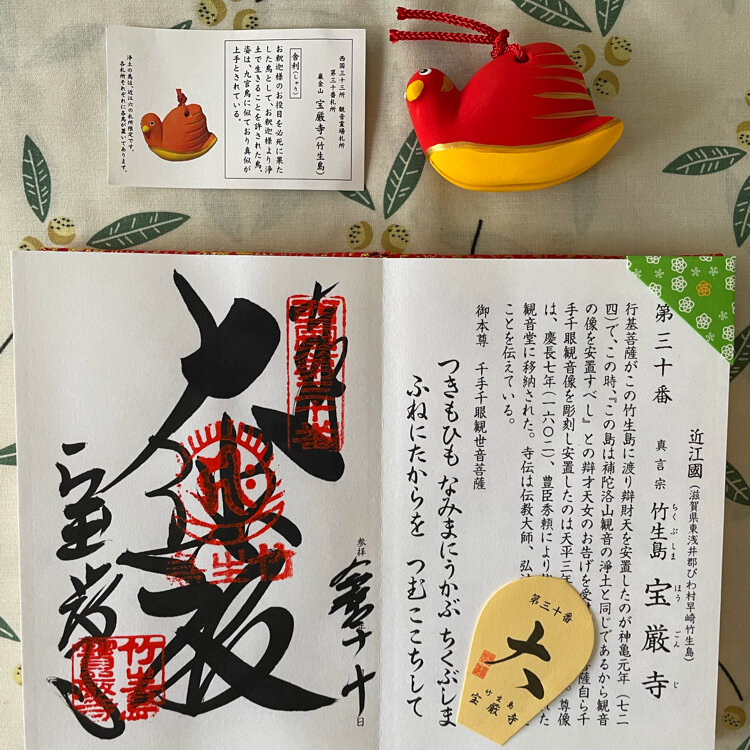 西国三十三所 観音霊場札所
第三十番札所
巌金山 宝厳寺(竹生島)
舎利(しゃり)
お釈迦様のお役目を必死に果た
した鳥として、お釈迦様より浄
土で生きることを許された鳥。
姿は、九官鳥に似ており真似が
上手とされている。
浄土の鳥は、近江六の札所限定です。
各札所それぞれに各鳥が置いてあります。
第三十番
近江國(滋賀県東浅井郡びわ村早崎竹生島)
真言宗 竹生島 宝厳寺
ちくぶしま ほうごんじ
行基菩薩がこの竹生島に渡り辯財天を安置したのが神亀元年(七二
四)で、この時、『この島は補陀洛山観音の浄土と同じであるから観音
の像を安置すべし』との辯才天女のお告げを受
菩薩自ら千
手千眼観音像を彫刻し安置したのは天平三年
尊像
は、慶長七年(一六〇二)、豊臣秀頼により
れた
観音堂に移納された。寺伝は伝教大師、弘法
ことを伝えている。
御本尊 千手千眼観世音菩薩
つきもひも なみまにうかぶ ちくぶしま
ふねにたからを つむここちして
第三十番
大
竹生島
宝厳寺
参拝
十日
大悲殿
宝厳寺
竹生島